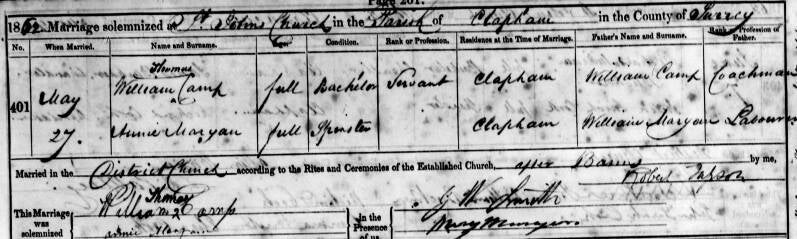 Page 201.
1862. Marriage solemnized at St. John's Church in the Parish of Clapham in the County of Surrey
No. When Married. Name and Surname. Age. Condition. Rank or Profession. Residence at the Time of Marriage. Father's Name and Surname. Rank or Profession of Father.
Thomas
401 May William Camp full Bachelor Servant Clapham William Camp Coachman
27. Annie Maryan full Spinster Clapham William Maryan Labourer
Married in the District Church according to the Rites and Ceremonies of the Established Church, after Banns by me,
Robert
This Marriage was solemnized
Thomas
William Camp
Annie
In the Presence of us,
J
Mary